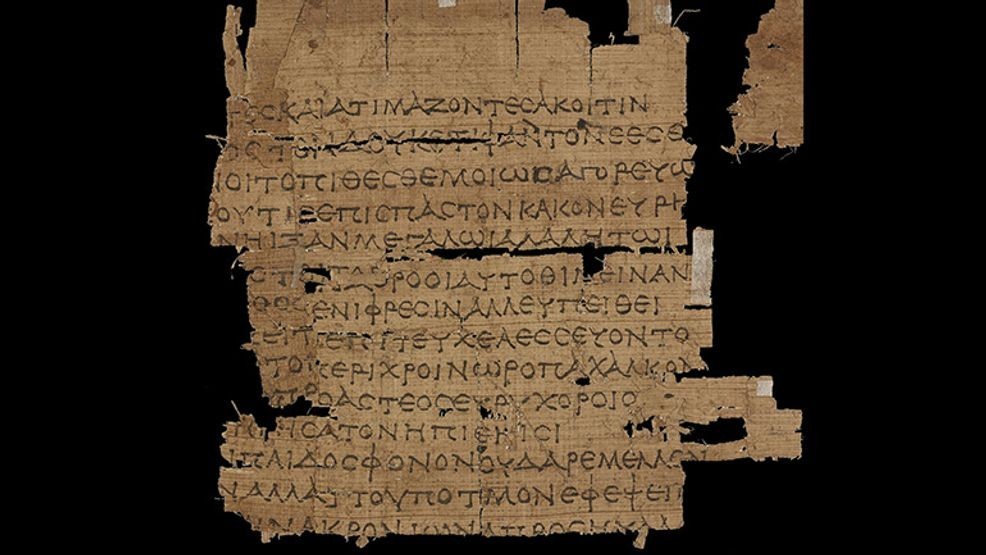 ΤΕΣΚΑΙΑΤΙΜΑΖΟΝΤΕΣΑΚΟΙΤΙΝ
ΤΟΝΔΟΥΚΕΤΙΦΑΝΤΟΝΕΕΣΘ
ΝΟΙΤΟΠΙΘΕΣΘΕΜΟΙΩΣΑΓΟΡΕΥΩ
ΟΥΤΙΣΕΠΙΣΠΑΣΤΟΝΚΑΚΟΝΕΥΡΗ
ΝΗΙΞΑΝΜΕΓΑΛΩΙΑΛΑΛΗΤΩΙ
ΑΘΡΟΟΙΑΥΤΟΘΙΜΕΙΝΑΝ
ΘΟΣΕΝΙΦΡΕΣΙΝΑΛΛΕΥΠΕΙΘΕΙ
ΕΠΙΤΕΥΧΕΑΕΣΣΕΥΟΝΤΟ
ΤΟΠΕΡΙΧΡΟΙΝΩΡΟΠΑΧΑΛΚΟΝ
ΠΡΟΑΣΤΕΟΣΕΥΡΥΧΟΡΟΙΟ
ΗΣΑΤΟΝΗΠΙΕΗΙΣΙ
ΙΠΑΙΔΟΣΦΟΝΟΝΟΥΔΑΡΕΜΕΛΛΕΝ
ΝΑΛΛΑΥΤΟΥΠΟΤΜΟΝΕΦΕΨΕΙΝ
ΗΝΑΚΡΟΝΙΩΝΑΠΡΟΣΗΥΔΑ